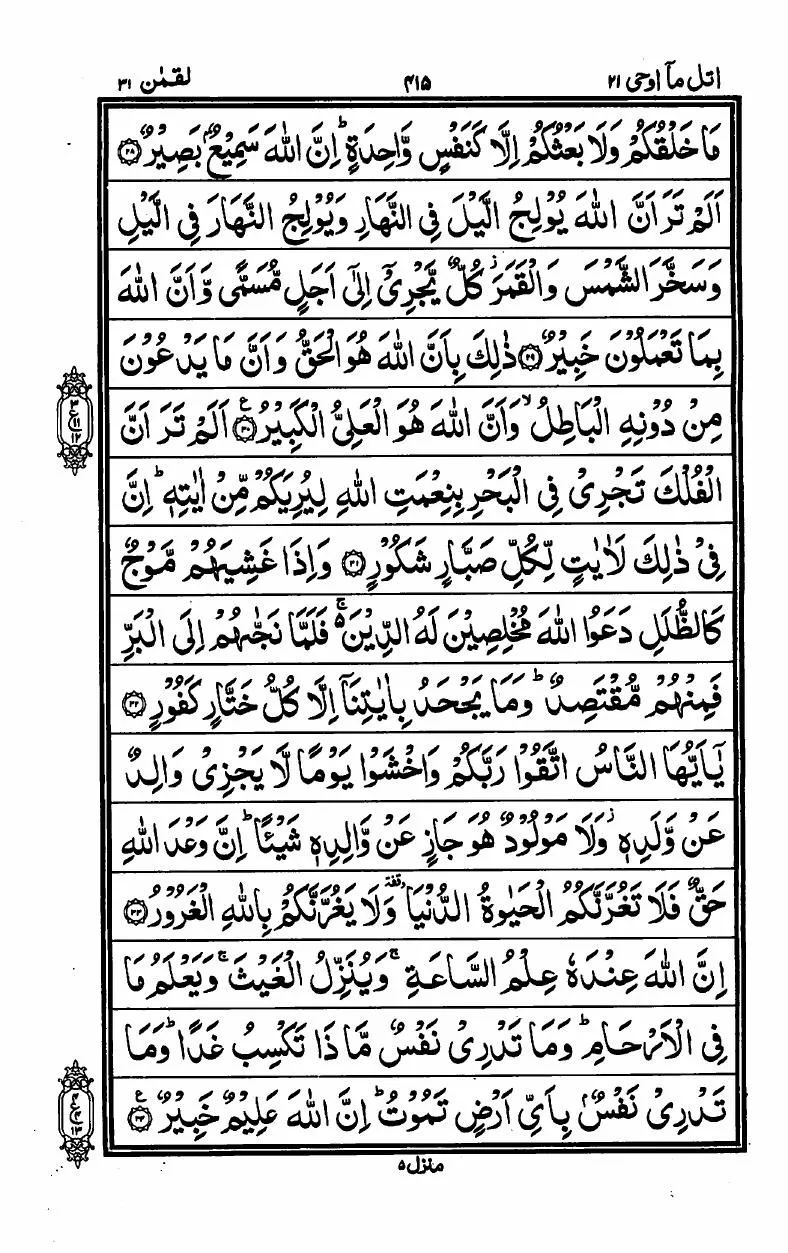 اتل مآ اوحی ۲۱
۴۱۵
لقمٰن ۳۱
مَا خَلْقُكُمْ وَلَا بَعْثُكُمْ اِلَّا كَنَفْسٍ وَّاحِدَةٍ ؕ اِنَّ اللّٰهَ سَمِيْعٌۢ بَصِيْرٌ ۲۸
اَلَمْ تَرَ اَنَّ اللّٰهَ يُوْلِجُ الَّيْلَ فِى النَّهَارِ وَيُوْلِجُ النَّهَارَ فِى الَّيْلِ
وَسَخَّرَ الشَّمْسَ وَالْقَمَرَ ؗ كُلٌّ يَّجْرِىْۤ اِلٰٓى اَجَلٍ مُّسَمًّى وَّاَنَّ اللّٰهَ
بِمَا تَعْمَلُوْنَ خَبِيْرٌ ۲۹ ذٰلِكَ بِاَنَّ اللّٰهَ هُوَ الْحَقُّ وَاَنَّ مَا يَدْعُوْنَ
مِنْ دُوْنِهِ الْبَاطِلُ ۙ وَاَنَّ اللّٰهَ هُوَ الْعَلِىُّ الْكَبِيْرُ ۳۰ ع اَلَمْ تَرَ اَنَّ
الْفُلْكَ تَجْرِىْ فِى الْبَحْرِ بِنِعْمَتِ اللّٰهِ لِيُرِيَكُمْ مِّنْ اٰيٰتِهٖ ؕ اِنَّ
فِىْ ذٰلِكَ لَاٰيٰتٍ لِّكُلِّ صَبَّارٍ شَكُوْرٍ ۳۱ وَاِذَا غَشِيَهُمْ مَّوْجٌ
كَالظُّلَلِ دَعَوُا اللّٰهَ مُخْلِصِيْنَ لَهُ الدِّيْنَ ۵ۚ فَلَمَّا نَجّٰىهُمْ اِلَى الْبَرِّ
فَمِنْهُمْ مُّقْتَصِدٌ ؕ وَمَا يَجْحَدُ بِاٰيٰتِنَاۤ اِلَّا كُلُّ خَتَّارٍ كَفُوْرٍ ۳۲
يٰۤاَيُّهَا النَّاسُ اتَّقُوْا رَبَّكُمْ وَاخْشَوْا يَوْمًا لَّا يَجْزِىْ وَالِدٌ
عَنْ وَّلَدِهٖ ؗ وَلَا مَوْلُوْدٌ هُوَ جَازٍ عَنْ وَّالِدِهٖ شَيْـًٔا ؕ اِنَّ وَعْدَ اللّٰهِ
حَقٌّ فَلَا تَغُرَّنَّكُمُ الْحَيٰوةُ الدُّنْيَا وقفة وَلَا يَغُرَّنَّكُمْ بِاللّٰهِ الْغَرُوْرُ ۳۳
اِنَّ اللّٰهَ عِنْدَهٗ عِلْمُ السَّاعَةِ ۚ وَيُنَزِّلُ الْغَيْثَ ۚ وَيَعْلَمُ مَا
فِى الْاَرْحَامِ ؕ وَمَا تَدْرِىْ نَفْسٌ مَّا ذَا تَكْسِبُ غَدًا ؕ وَمَا
تَدْرِىْ نَفْسٌۢ بِاَىِّ اَرْضٍ تَمُوْتُ ؕ اِنَّ اللّٰهَ عَلِيْمٌ خَبِيْرٌ ۳۴ ع
۳
ع ۱۱
۱۲
۴
ع ۴
۱۳
منزل ۵